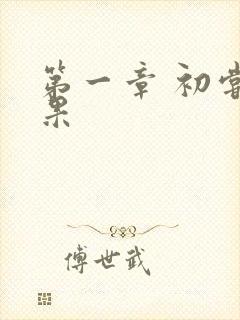 第一章 初尝
果
傅世武